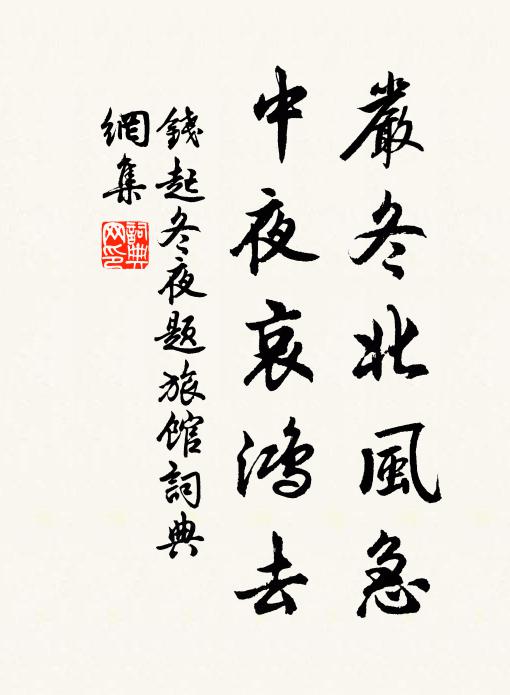 嚴冬北風急
中夜哀鴻去
錢起冬夜題旅館詞典
網集
詞典
网印